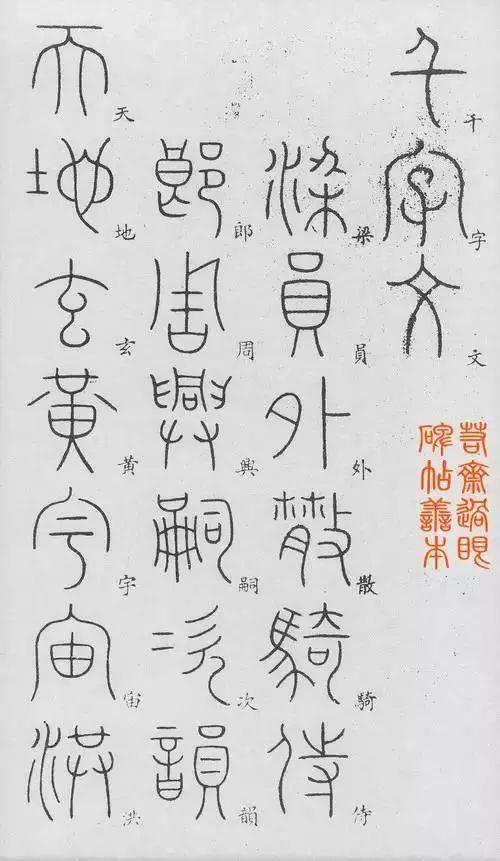 千字文
梁員外散騎侍
郎周興嗣次韻
天地玄黃宇宙洪
齋過眼
碑帖善本